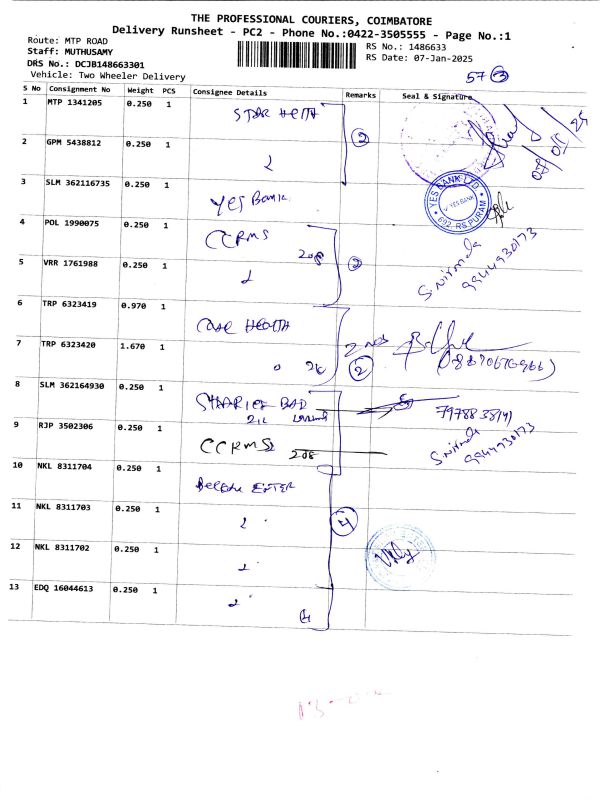 THE PROFESSIONAL COURIERS, COIMBATORE
Delivery Runsheet - PC2 - Phone No.:0422-3505555 - Page No.:1
Route: MTP ROAD
Staff: MUTHUSAMY
DRS No.: DCJB148663301
Vehicle: Two Wheeler Delivery
RS No.: 1486633
RS Date: 07-Jan-2025
57 3
S No Consignment No Weight PCS Consignee Details Remarks Seal & Signature
1 MTP 1341205 0.250 1 STAR HEITH
2
2 GPM 5438812 0.250 1
3 SLM 362116735 0.250 1 YES Bank
YES BANK LTD
YES BANK
692- RS PURAM
4 POL 1990075 0.250 1 CCRMS 208
2
S. Nirmala
9944930173
5 VRR 1761988 0.250 1
6 TRP 6323419 0.970 1 CARE HEALTH
2 nos
2
7 TRP 6323420 1.670 1
8 SLM 362164930 0.250 1 BAD
212
9 RJP 3502306 0.250 1 CCRMS 208
S. Nirmala
9944930173
10 NKL 8311704 0.250 1
11 NKL 8311703 0.250 1
4
12 NKL 8311702 0.250 1
13 EDQ 16044613 0.250 1
4